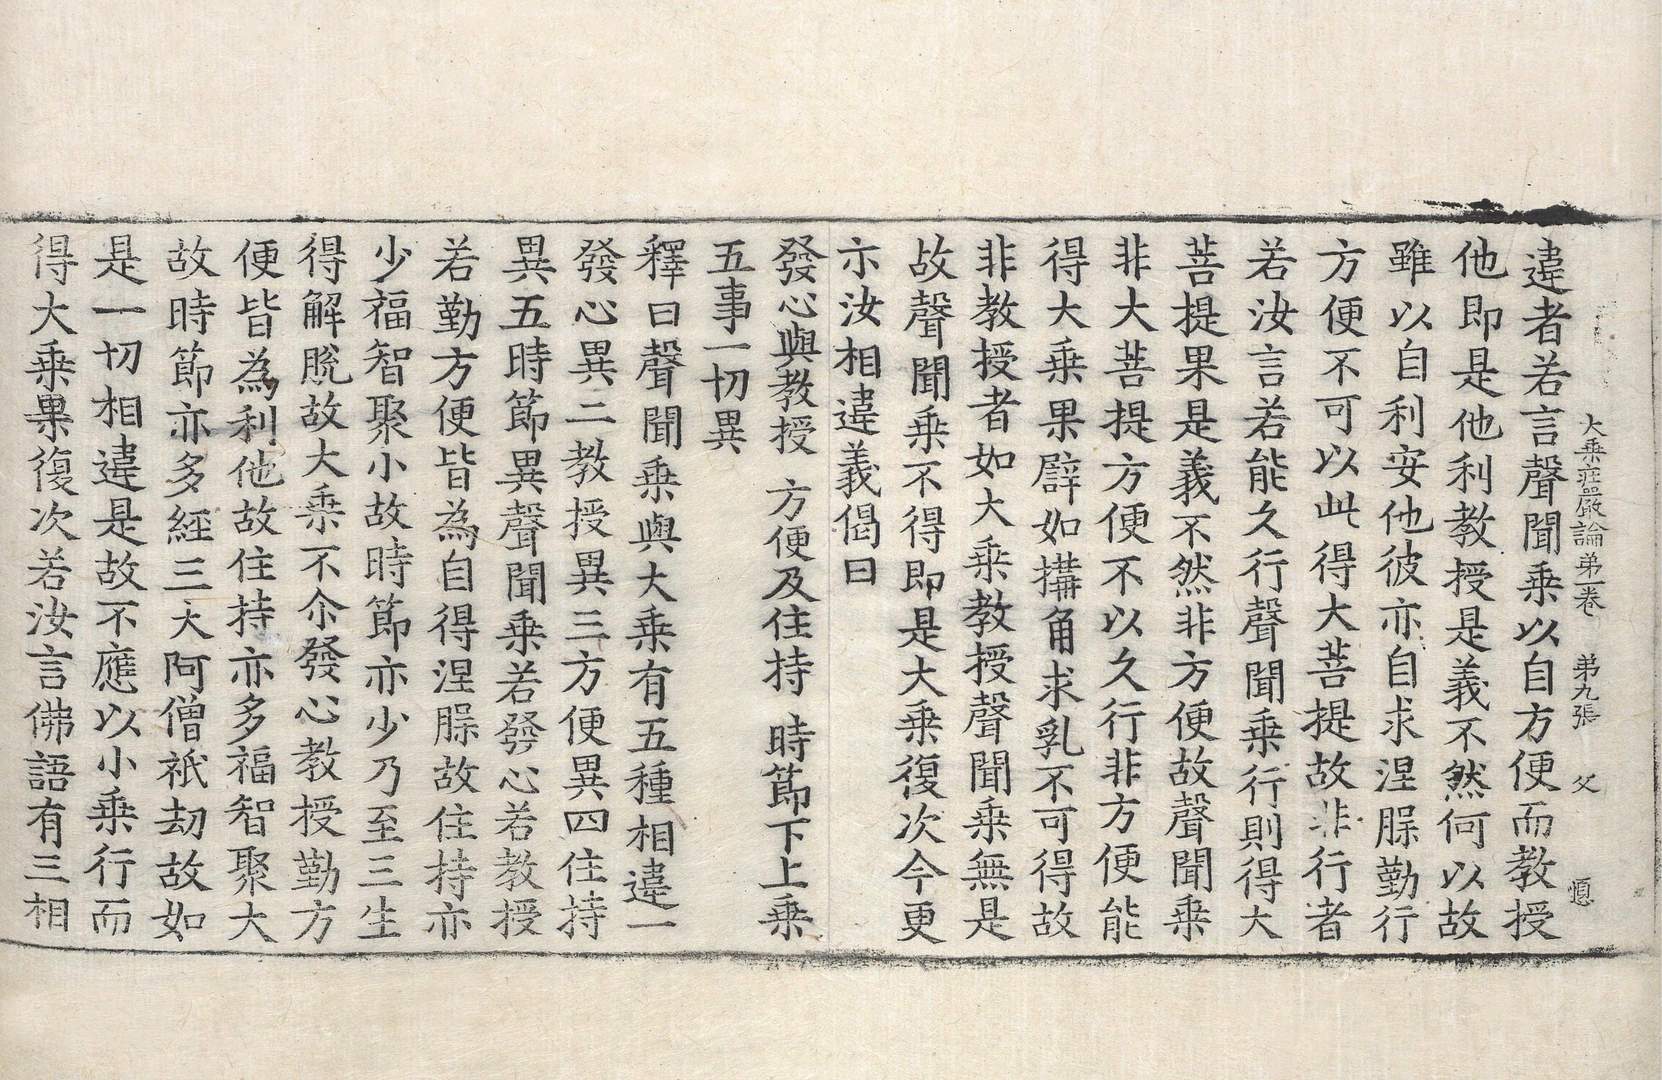 大乗㽵嚴論苐一卷 苐九張 父 㥧
違者若言聲聞乗以自方便而教授
他即是他利教授是義不然何以故
雖以自利安他彼亦自求涅脲勤行
方便不可以此得大菩提故非行者
若汝言若能久行聲聞乗行則得大
菩提果是義不然非方便故聲聞乗
非大菩提方便不以久行非方便能
得大乗果譬如搆角求乳不可得故
非教授者如大乗教授聲聞乗無是
故聲聞乗不得即是大乗復次今更
示汝相違義偈曰
發心與教授 方便及住持 時節下上乗
五事一切異
釋曰聲聞乗與大乗有五種相違一
發心異二教授異三方便異四住持
異五時節異聲聞乗若發心若教授
若勤方便皆為自得涅脲故住持亦
少福智聚小故時節亦少乃至三生
得解脫故大乗不尒發心教授勤方
便皆為利他故住持亦多福智聚大
故時節亦多經三大阿僧祇劫故如
是一切相違是故不應以小乗行而
得大乗果復次若汝言佛語有三相